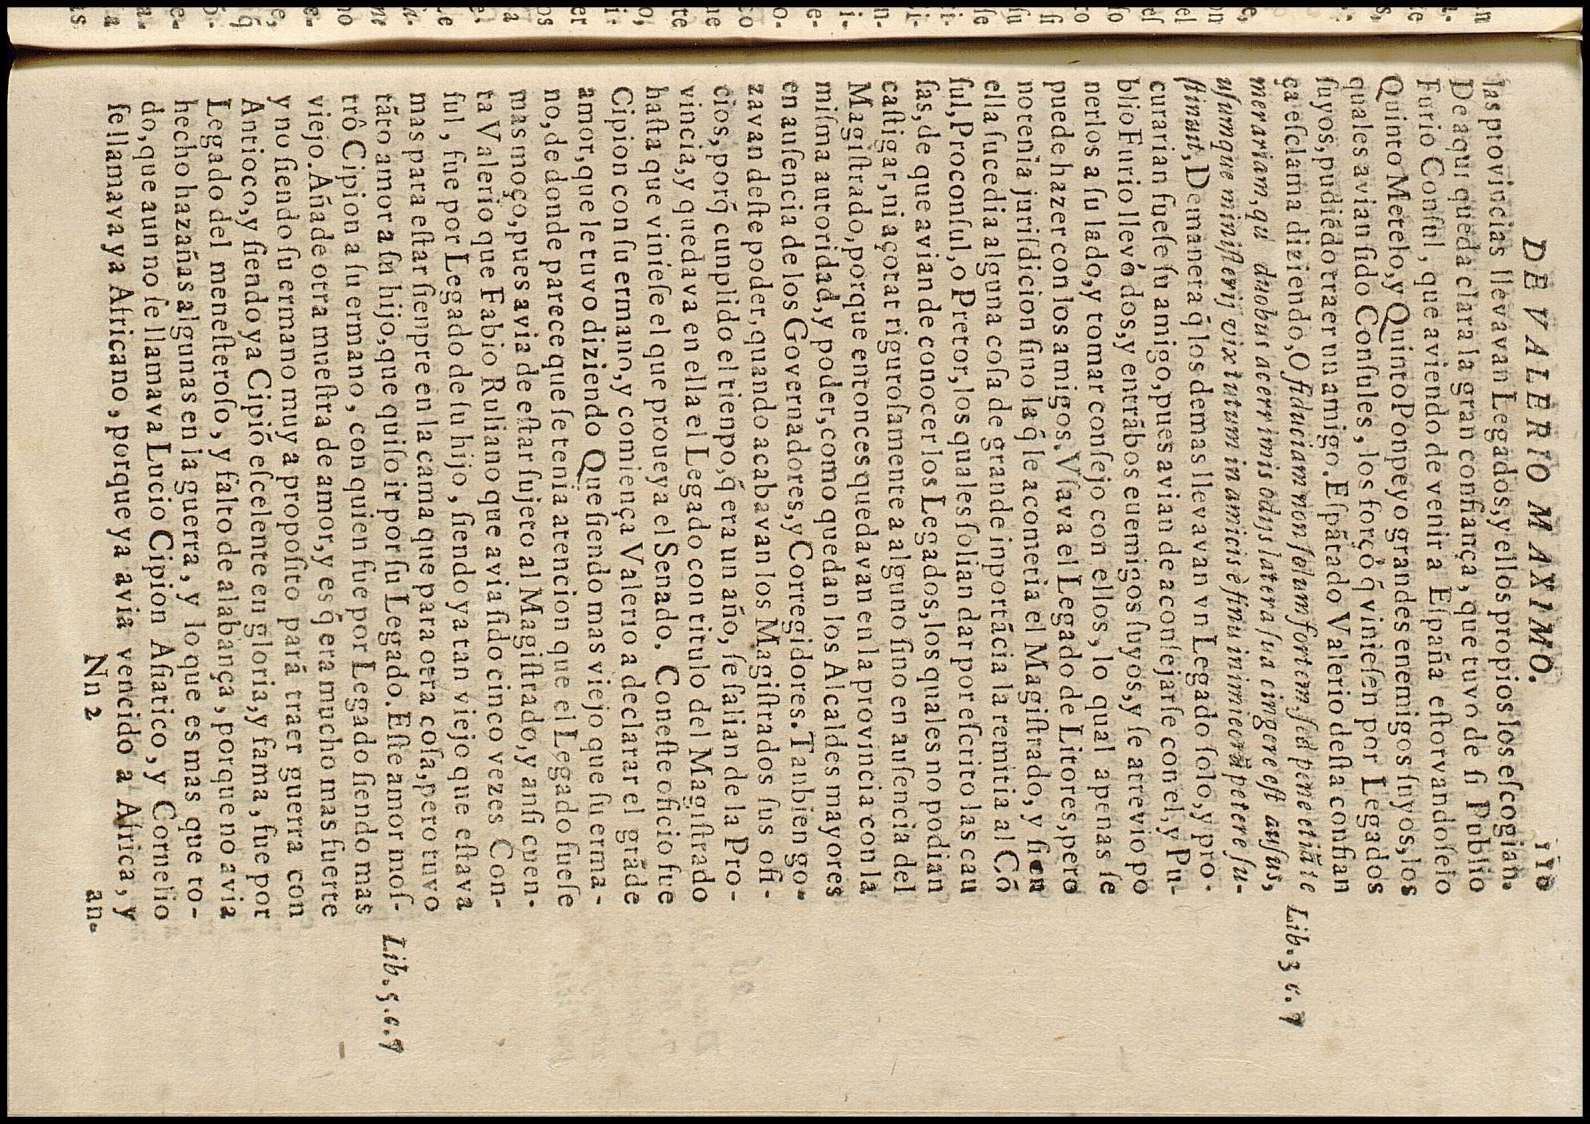 DE VALERIO MAXIMO. 110
las provincias llevavan Legados, y ellos propios los eſcogian.
De aqui queda clara la gran confiança, que tuvo de ſi Publio
Furio Conſul, que aviendo de venir a Eſpaña eſtorvandoſelo
Quinto Metelo, y Quinto Ponpeyo grandes enemigos ſuyos, los
quales avian ſido Conſules, los forço q̃ vinieſen por Legados
ſuyos, pudiẽdo traer un amigo. Eſpãtado Valerio deſta confian
ça eſclama diziendo, O fiduciam non ſolum fortem, ſed pene etiã te
merariam, qui duobus acerrimis odijs latera ſua cingere eſt auſus,
uſumque miniſterij vix tutum in amicis è ſinu inimicorũ petere ſu-
ſtinuit, Demanera q̃ los demas llevavan vn Legado ſolo, y pro-
curarian fueſe ſu amigo, pues avian de aconſejarſe con el, y Pu-
blio Furio llevò dos, y entrãbos euemigos ſuyos, y ſe atrevio po
nerlos a ſu lado, y tomar conſejo con ellos, lo qual apenas ſe
puede hazer con los amigos. Vſava el Legado de Litores, pero
no tenia juriſdicion ſino la q̃ le acometia el Magiſtrado, y ſi en
ella ſucedia alguna coſa de grande inportãcia la remitia al Cõ
ſul, Proconſul, o Pretor, los quales ſolian dar por eſcrito las cau
ſas, de que avian de conocer los Legados, los quales no podian
caſtigar, ni açotar riguroſamente a alguno ſino en auſencia del
Magiſtrado, porque entonces quedavan en la provincia con la
miſma autoridad, y poder, como quedan los Alcaldes mayores
en auſencia de los Governadores, y Corregidores. Tanbien go-
zavan deſte poder, quando acabavan los Magiſtrados ſus ofi-
cios, porq̃ cunplido el tienpo, q̃ era un año, ſe ſalian de la Pro-
vincia, y quedava en ella el Legado con titulo del Magiſtrado
haſta que vinieſe el que proueya el Senado. Coneſte oficio fue
Cipion con ſu ermano, y comiença Valerio a declarar el grãde
amor, que le tuvo diziendo Que ſiendo mas viejo que ſu erma-
no, de donde parece que ſe tenia atencion que el Legado fueſe
mas moço, pues avia de eſtar ſujero al Magiſtrado, y anſi cuen-
ta Valerio que Fabio Ruliano que avia ſido cinco vezes Con-
ſul, fue por Legado de ſu hijo, ſiendo ya tan viejo que eſtava
mas para eſtar ſienpre en la cama que para otra coſa, pero tuvo
tãto amor a ſu hijo, que quiſo ir por ſu Legado. Eſte amor moſ-
trò Cipion a ſu ermano, con quien fue por Legado ſiendo mas
viejo. Añade otra mueſtra de amor, y es q̃ era mucho mas fuerte
y no ſiendo ſu ermano muy a propoſito para traer guerra con
Antioco, y ſiendo ya Cipiõ eſcelente en gloria, y fama, fue por
Legado del meneſteroſo, y falto de alabança, porque no avia
hecho hazañas algunas en la guerra, y lo que es mas que to-
do, que aun no ſe llamava Lucio Cipion Aſiatico, y Cornelio
ſe llamava ya Africano, porque ya avia vencido a Africa, y
Nn 2 an-
Lib. 3 c. 7
Lib. 5. c. 7